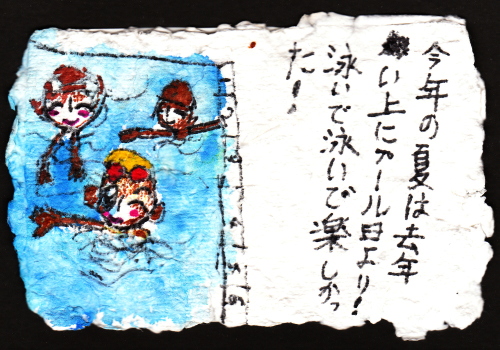 今年の夏は去年
い上にプール日より!
泳いで泳いで楽しかっ
た!